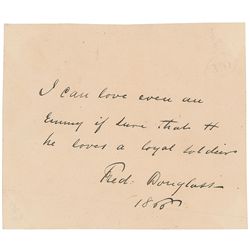 I can love even an
Enemy if sure that
he loves a loyal soldier
Fred. Douglass
1866